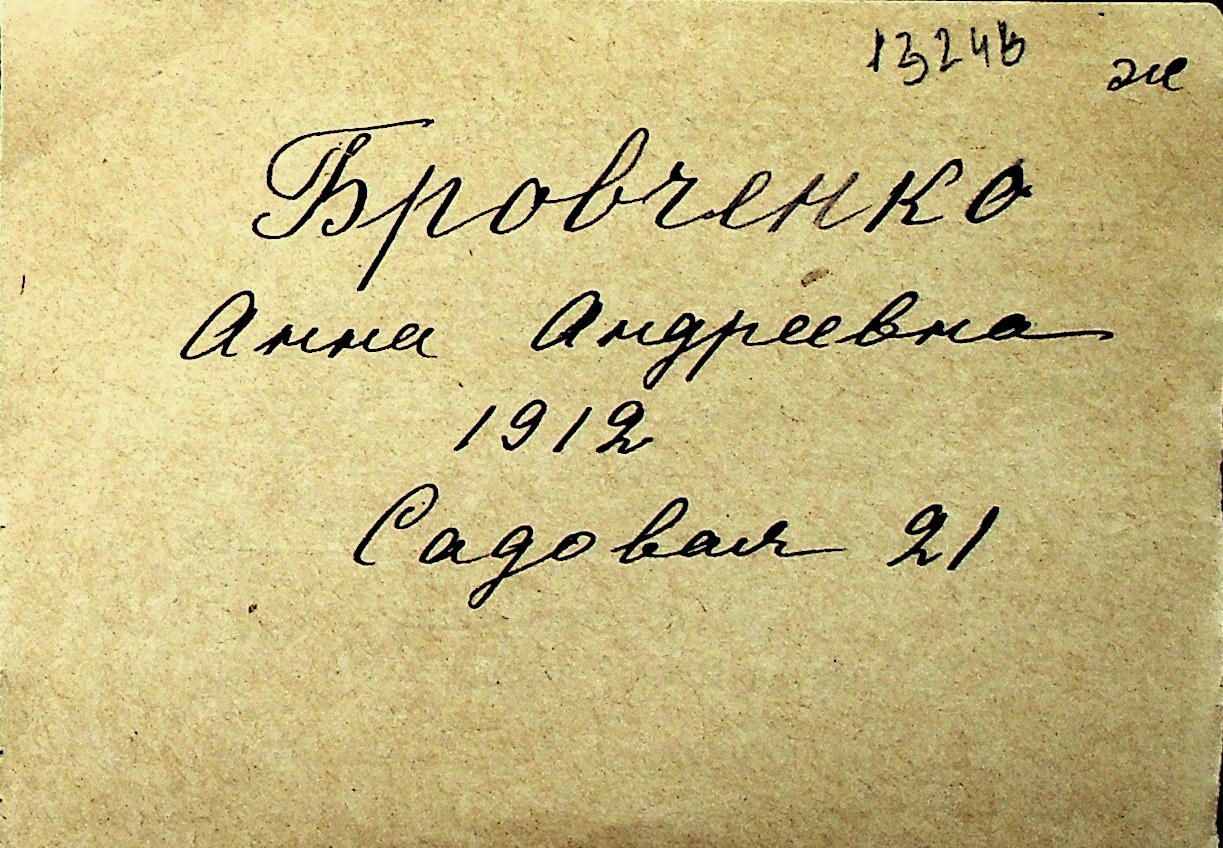 13246 ж
Бровченко
Анна Андреевна
1912
Садовая 21